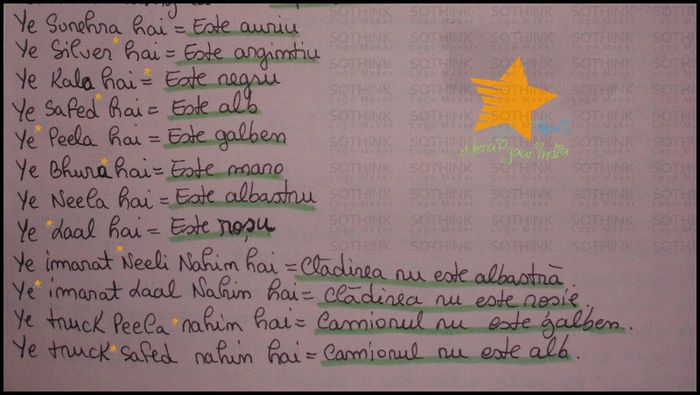 Ye Sunehra hai = Este auriu
Ye Silver hai = Este argintiu
Ye Kala hai = Este negru
Ye Safed hai = Este alb
Ye Peela hai = Este galben
Ye Bhura hai = Este maro
Ye Neela hai = Este albastru
Ye Laal hai = Este roșu
Ye imarat Neeli Nahim hai = Clădirea nu este albastră.
Ye imarat Laal Nahim hai = Clădirea nu este rosie.
Ye truck Peela nahim hai = Camionul nu este galben.
Ye truck Safed nahim hai = Camionul nu este alb.
SOTHINK
Logo Maker